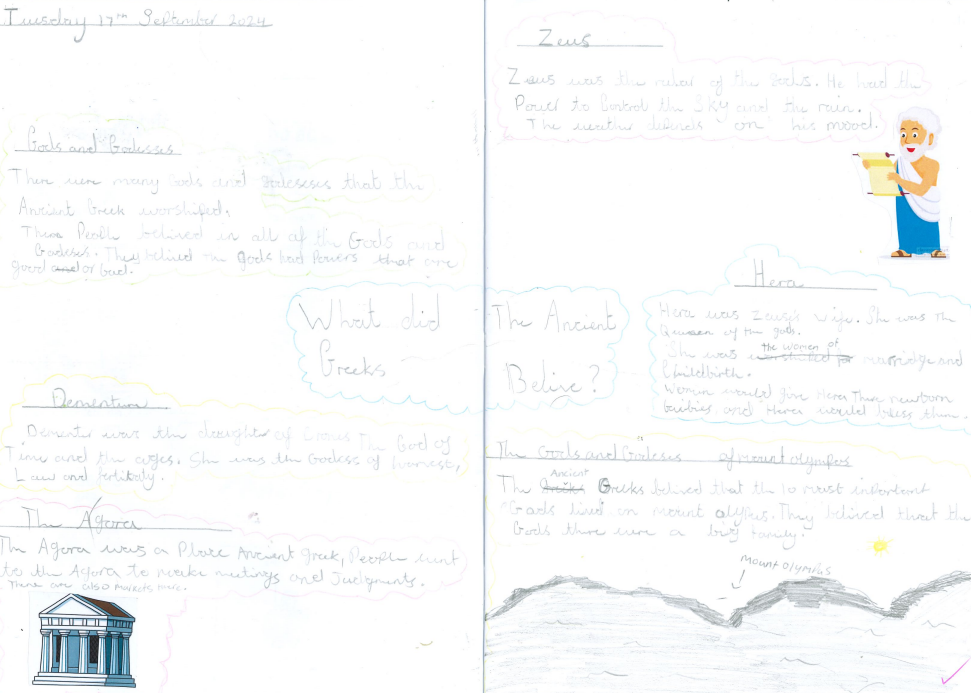 Tuesday 17th September 2024
Gods and Godesses
There were many Gods and Godeseses that the
Ancient Greek worshiped.
These People belived in all of the Gods and
Godeses. They belived the gods had Powers that are
good and or bad.
What did The Ancient
Greeks Belive?
Dementer was the daughter of Cronus The God of
Time and the ages. She was the Godess of harvest,
Law and
The Agora
The Agora was a Place Ancient greek, People went
to the Agora to make meetings and Judgments.
There are also Markets there.
Zeus
Zeus was the ruler of the Gods. He had the
Power to Control the Sky and the rain.
The weather depends on his mood.
Hera
Hera was Zeus's wife. She was the
Queen of the gods.
She was the women of marridge and
Childbirth.
Women would give Hera Their newborn
babies, and Hera would bless them.
The Gods and Godeses of mount olympos
The Ancient Greeks belived that the 10 most important
Gods lived on mount olypus. They belived that the
Gods there were a big family.
Mount olymphs